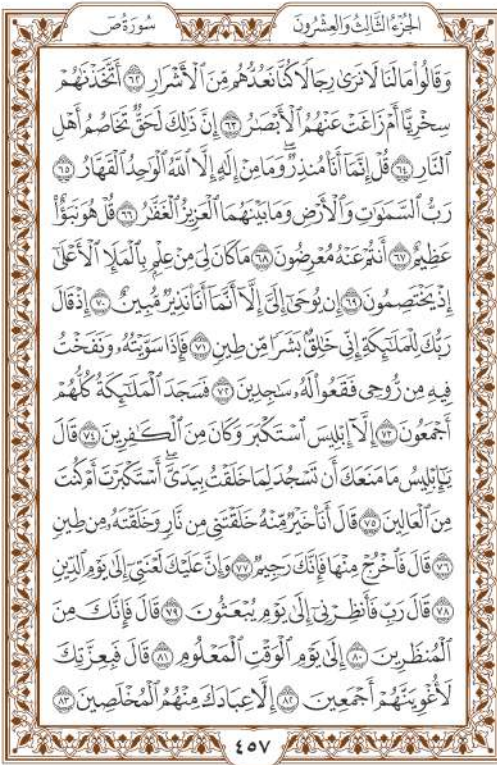 الجُزْءُ الثَّالِثُ وَالعِشْرُونَ
سُورَةُ صٓ
وَقَالُوا۟ مَا لَنَا لَا نَرَىٰ رِجَالًا كُنَّا نَعُدُّهُم مِّنَ ٱلْأَشْرَارِ ٦٢ أَتَّخَذْنَٰهُمْ
سِخْرِيًّا أَمْ زَاغَتْ عَنْهُمُ ٱلْأَبْصَٰرُ ٦٣ إِنَّ ذَٰلِكَ لَحَقٌّ تَخَاصُمُ أَهْلِ
ٱلنَّارِ ٦٤ قُلْ إِنَّمَآ أَنَا۠ مُنذِرٌ ۖ وَمَا مِنْ إِلَٰهٍ إِلَّا ٱللَّهُ ٱلْوَٰحِدُ ٱلْقَهَّارُ ٦٥
رَبُّ ٱلسَّمَٰوَٰتِ وَٱلْأَرْضِ وَمَا بَيْنَهُمَا ٱلْعَزِيزُ ٱلْغَفَّٰرُ ٦٦ قُلْ هُوَ نَبَؤٌا۟
عَظِيمٌ ٦٧ أَنتُمْ عَنْهُ مُعْرِضُونَ ٦٨ مَا كَانَ لِىَ مِنْ عِلْمٍۭ بِٱلْمَلَإِ ٱلْأَعْلَىٰٓ
إِذْ يَخْتَصِمُونَ ٦٩ إِن يُوحَىٰٓ إِلَىَّ إِلَّآ أَنَّمَآ أَنَا۠ نَذِيرٌ مُّبِينٌ ٧٠ إِذْ قَالَ
رَبُّكَ لِلْمَلَٰٓئِكَةِ إِنِّى خَٰلِقٌۢ بَشَرًا مِّن طِينٍ ٧١ فَإِذَا سَوَّيْتُهُۥ وَنَفَخْتُ
فِيهِ مِن رُّوحِى فَقَعُوا۟ لَهُۥ سَٰجِدِينَ ٧٢ فَسَجَدَ ٱلْمَلَٰٓئِكَةُ كُلُّهُمْ
أَجْمَعُونَ ٧٣ إِلَّآ إِبْلِيسَ ٱسْتَكْبَرَ وَكَانَ مِنَ ٱلْكَٰفِرِينَ ٧٤ قَالَ
يَٰٓإِبْلِيسُ مَا مَنَعَكَ أَن تَسْجُدَ لِمَا خَلَقْتُ بِيَدَىَّ ۖ أَسْتَكْبَرْتَ أَمْ كُنتَ
مِنَ ٱلْعَالِينَ ٧٥ قَالَ أَنَا۠ خَيْرٌ مِّنْهُ خَلَقْتَنِى مِن نَّارٍ وَخَلَقْتَهُۥ مِن طِينٍ
٧٦ قَالَ فَٱخْرُجْ مِنْهَا فَإِنَّكَ رَجِيمٌ ٧٧ وَإِنَّ عَلَيْكَ لَعْنَتِىٓ إِلَىٰ يَوْمِ ٱلدِّينِ
٧٨ قَالَ رَبِّ فَأَنظِرْنِىٓ إِلَىٰ يَوْمِ يُبْعَثُونَ ٧٩ قَالَ فَإِنَّكَ مِنَ
ٱلْمُنظَرِينَ ٨٠ إِلَىٰ يَوْمِ ٱلْوَقْتِ ٱلْمَعْلُومِ ٨١ قَالَ فَبِعِزَّتِكَ
لَأُغْوِيَنَّهُمْ أَجْمَعِينَ ٨٢ إِلَّا عِبَادَكَ مِنْهُمُ ٱلْمُخْلَصِينَ ٨٣
٤٥٧